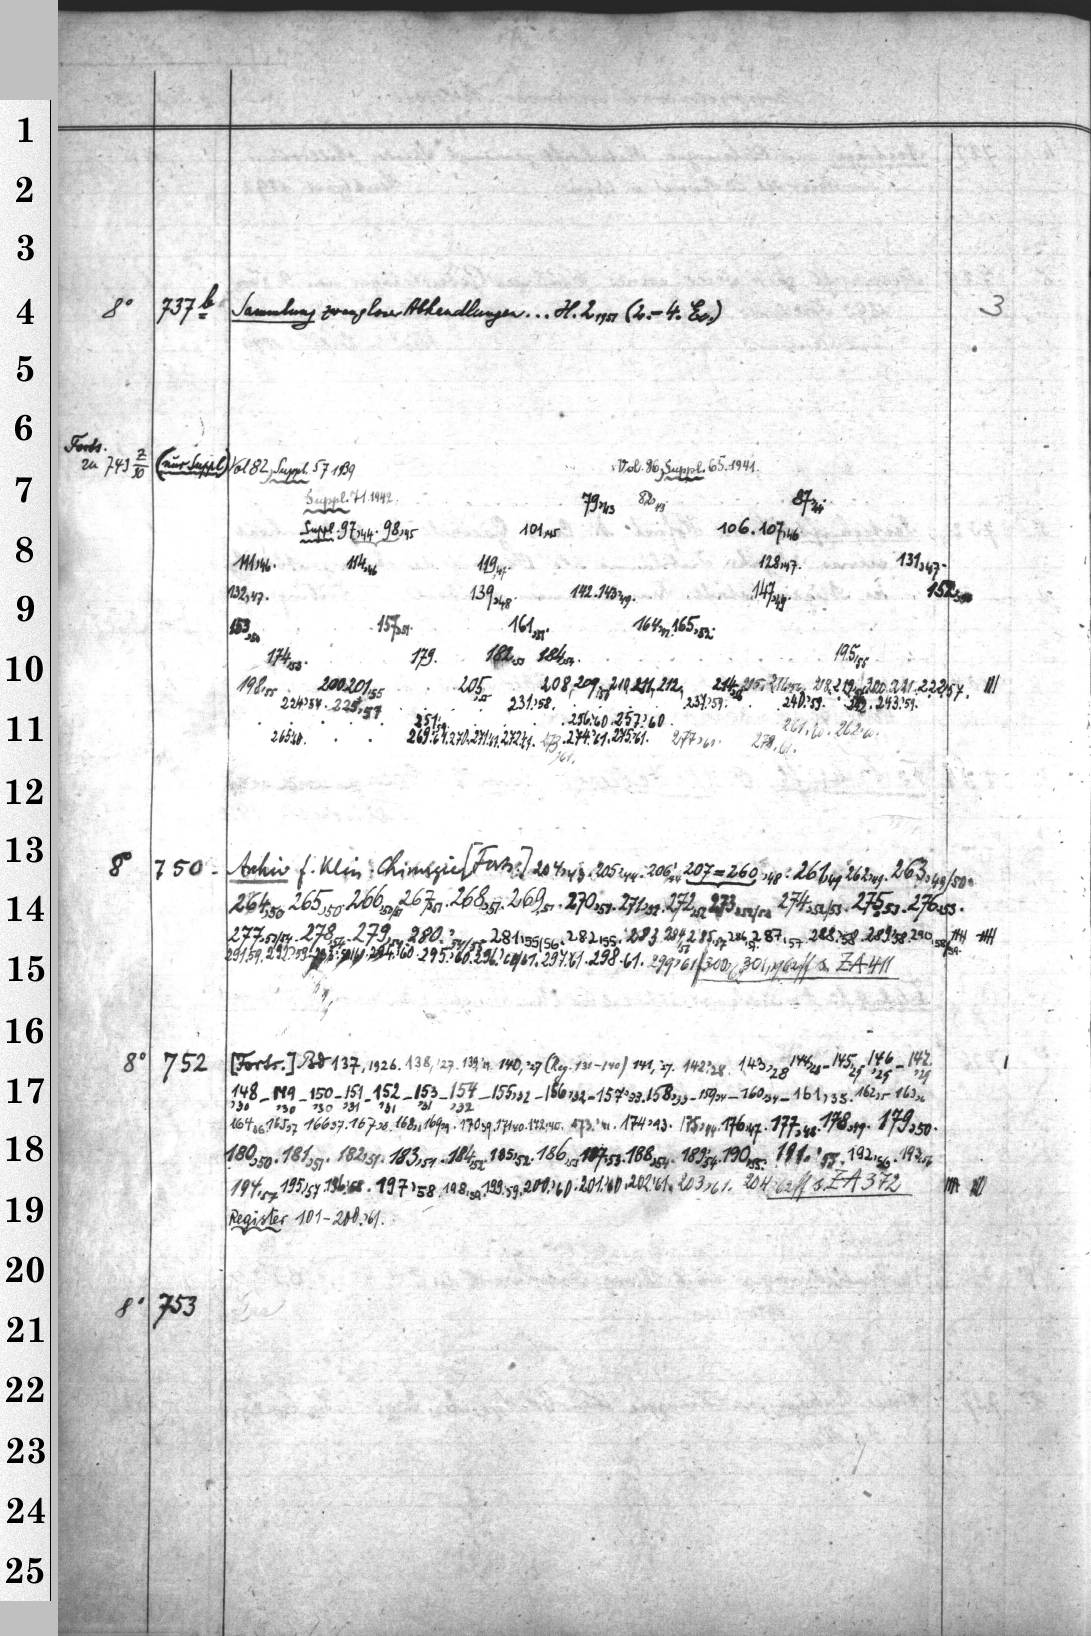 1
2
3
4
8° 737 b Sammlung zwangloser Abhandlungen... H. 2, 1951 (2.-4. Ex.) 3
5
6
Forts.
zu 743 Z/10 (nur Suppl.) Vol 82, Suppl. 57 1939 Vol. 86, Suppl. 65. 1941.
7
Suppl. 71. 1942. 79, 43 82, 43 87, 44
Suppl. 97, 44. 98, 45 101, 45 106. 107, 46
8
111, 46. 114, 46 119, 47. 128, 47. 131, 47.
132, 47. 139, 48 142. 143, 49. 147, 49. 152, 50
9
153, 50 157, 51 161, 51. 164, 52. 165, 52.
10
174, 53. 179. 182, 53 184, 54. 195, 55
198, 55 200 201, 55 205, 208, 209, 210, 211, 212, 214, 215, 216, 218, 219, 220. 221. 222, 57.
224, 57. 225, 57 231, 58. 237, 59. 240, 59. 242. 243, 59.
11
251, 256, 60. 257, 60 261, 60. 262, 60.
265, 60. 269, 61. 270. 271, 61. 272, 61. 273, 61. 274, 61. 275, 61. 277, 61. 278, 61.
12
13
8° 750. Archiv f. Klin. Chirurgie [Forts.] 204, 43. 205, 44. 206, 44 207=260, 48. 261, 49 262, 49. 263, 49/50.
14
264, 50 265, 50. 266, 50/51 267, 51. 268, 51. 269, 51. 270, 51. 271, 52. 272, 52 273, 52/53 274, 52/53. 275, 53. 276, 53.
277, 53/54 278, 54. 279, 54. 280, 54/55 281, 55/56. 282, 55. 283 284, 57 285, 57 286, 57. 287, 57. 288, 58. 289, 58. 290, 58/59.
15
291, 59. 292, 59. 294, 60. 295, 60. 296, 60/61. 297, 61. 298, 61. 299, 61 300, 301, ff s. ZA 411
16
8° 752 [Forts.] Bd 137, 1926. 138, '27. 139, '27. 140, '27 (Reg. 131-140) 141, '27. 142, '28. 143, 28 144, 28 - 145, 29 - 146, 29 - 147, 29
17
148, 30 - 149, 30 - 150, 30 - 151, 31 - 152, 31 - 153, 31 - 154, 32 - 155, 32 - 156, 32 - 157, 33. 158, 33 - 159, 34 - 160, 34 - 161, 35. 162, 35 163, 36
164, 36. 165, 37 166, 37. 167, 38. 168, 38 169, 39. 170, 39. 171, 40. 172, 40. 173, '41. 174, 43. 175, 44. 176, 47. 177, 48. 178, 49. 179, 50.
18
180, 50. 181, 51. 182, 51. 183, 51. 184, 52. 185, 52. 186, 53 187, 53. 188, 54. 189, 54. 190, 55. 191, '55. 192, 56. 193, 56
194, 57. 195, 57 196, 58. 197, 58. 198, 59. 199, 59. 200, 60. 201, 60. 202, 61. 203, 61. 204 ff s. ZA 372
19
Register 101-200, 61.
20
8° 753
21
22
23
24
25